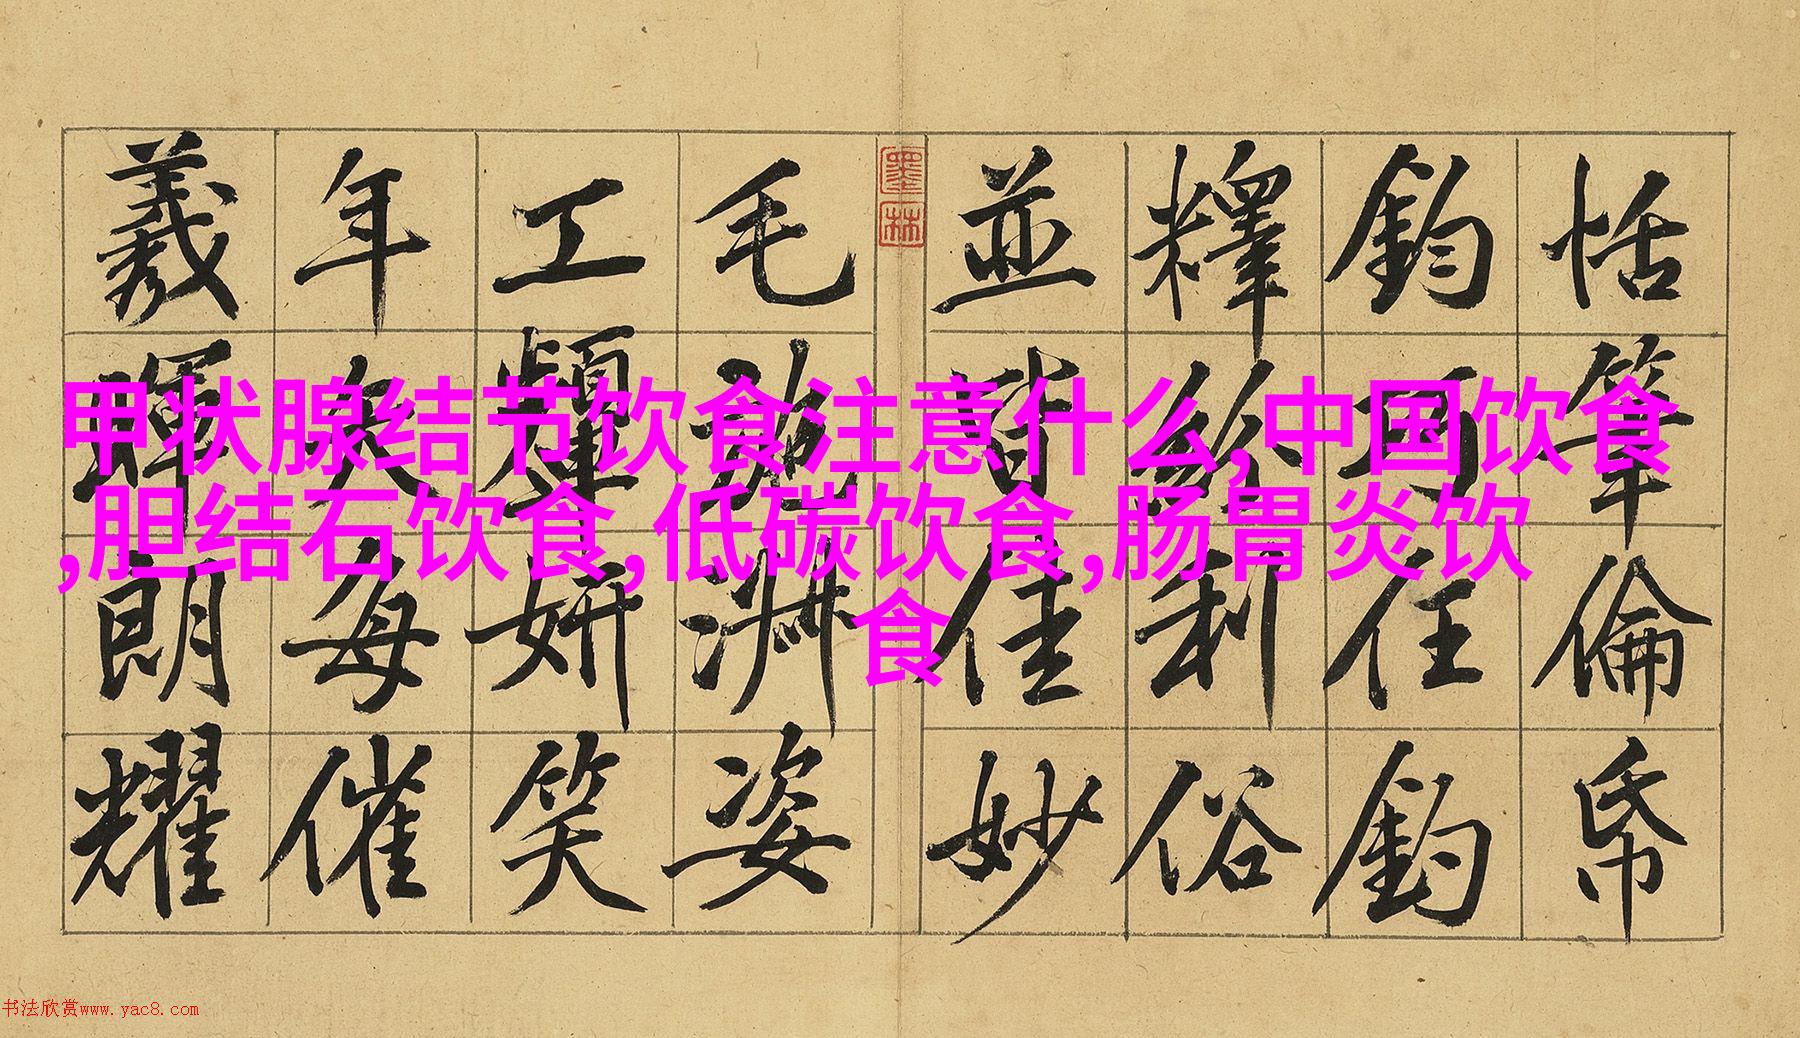 甲状腺结节饮食注意什么,中国饮食
,胆结石饮食,低碳饮食,肠胃炎饮
食
恬筆倫帋
鈞巧任鈞
釋紛利俗
並皆佳妙
墨林
毛施淑姿
工顰妍笑
年矢每催
羲暉朗耀
书法欣赏www.yac8.com